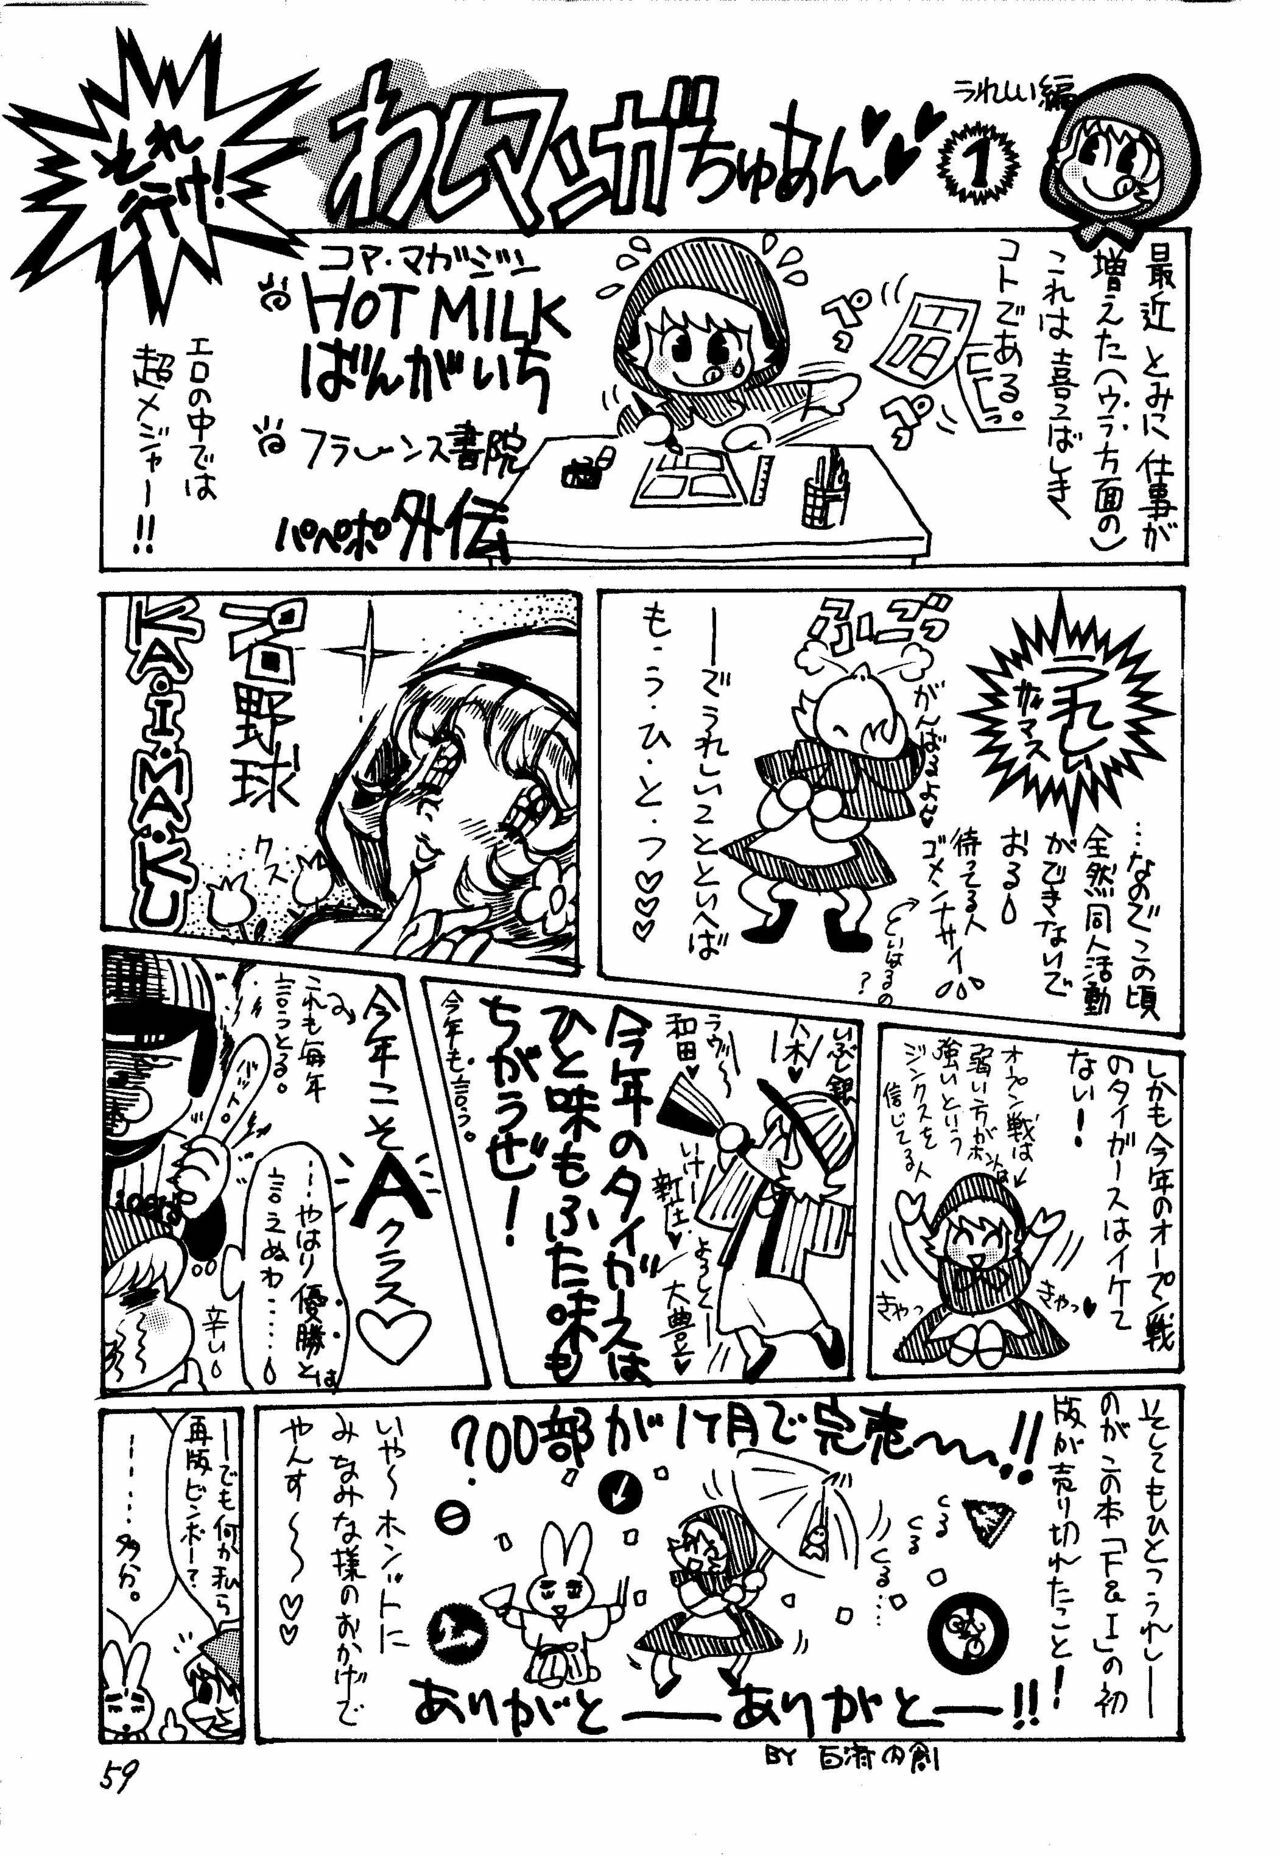 それ
行け!
わしマンガちゅあん♥♥
1
うれしい編
最近とみに仕事が
増えた(ウラ方面の)
これは喜こばしき
コトである。
ペっ
ペっ
コア・マガジン
HOT MILK
ばんがいち
フランス書院
パペポ外伝
エロの中では
超メジャー!!
うれしい
…なのでこの頃
全然同人活動
ができないで
おる
待てる人
ゴメンナサイ
といはるの
?
がんばるよん♥
ぶごっ
――でうれしいことといへば
も・う・ひ・と・つ♡♡♡
名野球
KA・I・MA・KU
クス
しかも今年のオープン戦
のタイガースはイケて
ない!
オープン戦は
弱い方がホントは
強いという
ジンクスを
信じてる人
きゃっ♥
きゃっ
いぶし銀
八木!
和田
いけー
新庄♥
よろしくー
大豊♥
今年のタイガースは
ひと味もふた味も
ちがうぜ!
今年も言う。
今年こそ
Aクラス♡
これも毎年
言うとる。
…やはり優勝とは
言えぬわ……
辛い
そしてもひとつうれしー
のがこの本「F&I」の初
版が売り切れたこと!
700部が1ケ月で完売〜!!
くる
くる
くる…
いや〜ホンットに
みなみな様のおかげで
やんす〜〜♡♡
ありがと――ありがと――!!
――でも何か私ら
再版ビンボー?
………多分。
59